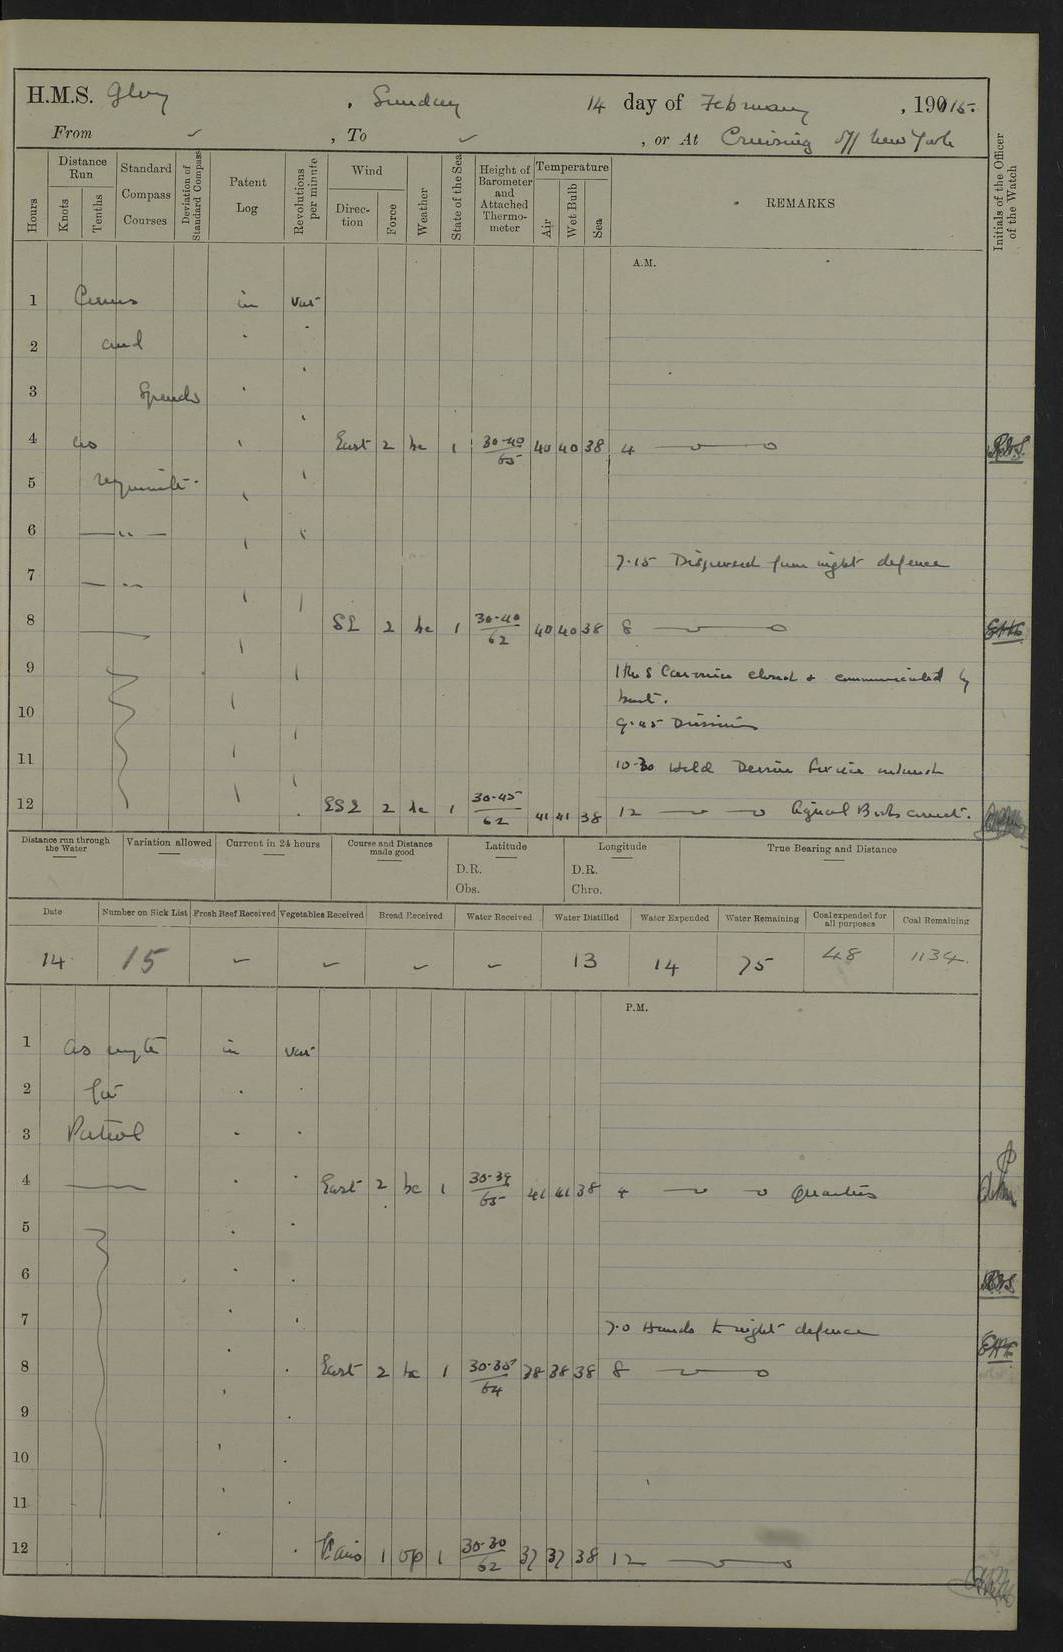 H.M.S. Glory, Sunday 14 day of February, 1915.
From ✓, To ✓, or At Cruising off New York
Hours
Distance Run
Knots
Tenths
Standard Compass Courses
Deviation of Standard Compass
Patent Log
Revolutions per minute
Wind
Direction
Force
Weather
State of the Sea
Height of Barometer and Attached Thermometer
Temperature
Air
Wet Bulb
Sea
REMARKS
Initials of the Officer of the Watch
A.M.
1 in var
2 and
3 Speeds
4 as East 2 bc 1 30-40/65 40 40 38 4
5 requisite.
6 — " —
7 — " 7.15 Dispersed from night defence
8 SE 2 bc 1 30-40/62 40 40 38 8
9 closed & communicated by
boat.
10 9.45 Divisions
11 10-30 Held Divine Service
12 ESE 2 bc 1 30-45/62 41 41 38 12 Books correct.
Distance run through the Water
Variation allowed
Current in 24 hours
Course and Distance made good
Latitude
D.R.
Obs.
Longitude
D.R.
Chro.
True Bearing and Distance
Date Number on Sick List Fresh Beef Received Vegetables Received Bread Received Water Received Water Distilled Water Expended Water Remaining Coal expended for all purposes Coal Remaining
14 15 – – – – 13 14 75 48 1134.
P.M.
1 as in var
2 for
3 Patrol
4 East 2 bc 1 30-39/65 41 41 38 4 Quarters
5
6
7 7.0 Hands to night defence
8 East 2 bc 1 30-35/64 38 38 38 8
9
10
11
12 1 op 1 30-30/62 37 37 38 12